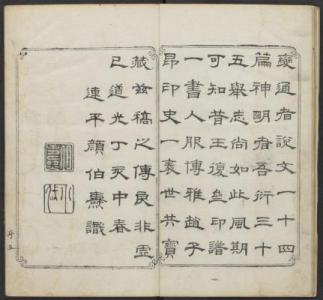 變通者說文一十四
篇神明者吾衍三十
五舉志尚如此風期
可知昔王復齋印譜
一書人服博雅趙子
昂印史一袠世共寶
藏茲稿之傳良非虛
已道光丁亥中春
連平顏伯燾識
序五